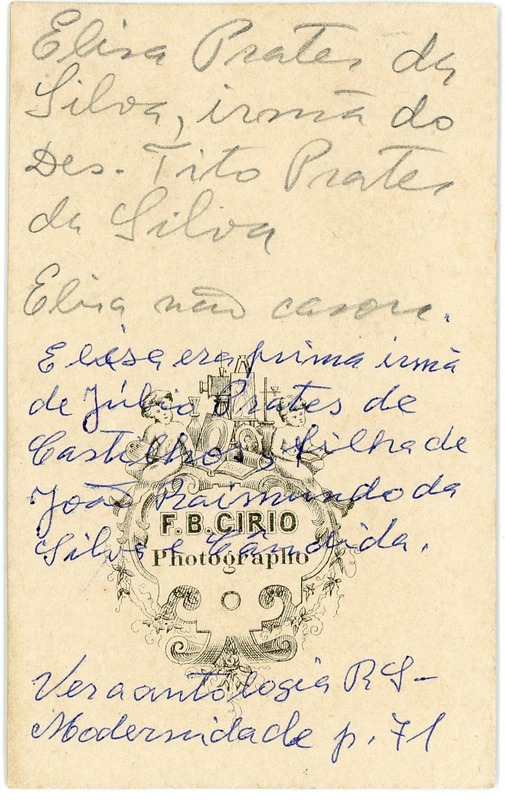 Elisa Prates da
Silva, irmã do
Des. Tito Prates
da Silva
Elisa não casou.
Elisa era prima irmã
de Júlio Prates de
Castilhos, filha de
João Raimundo da
Silva e Cândida.
F.B.CIRIO
Photographo
Ver a antologia RS-
Modernidade p. 71